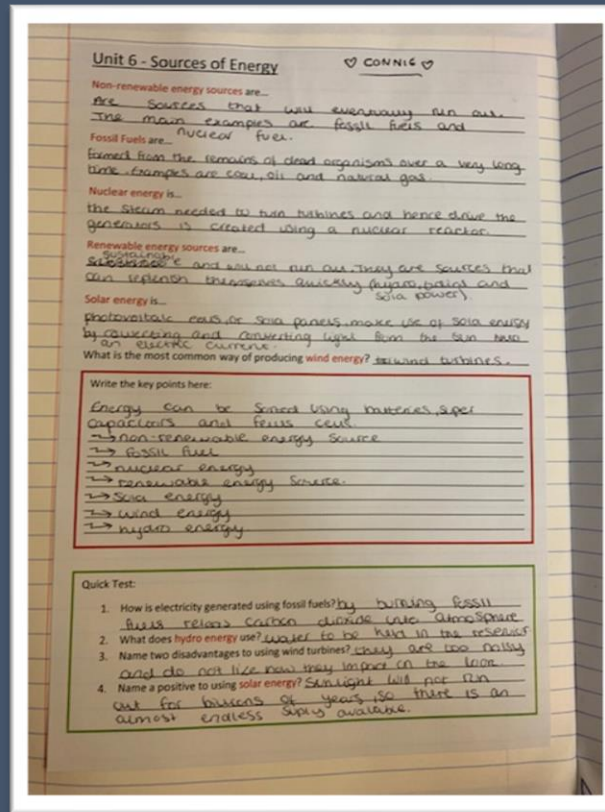 Unit 6 - Sources of Energy
♡ CONNIE ♡
Non-renewable energy sources are...
Are sources that will eventually run out.
The main examples are fossil fuels and
nuclear fuel.
Fossil Fuels are...
formed from the remains of dead organisms over a very long
time. Examples are coal, oil and natural gas.
Nuclear energy is...
the steam needed to turn turbines and hence drive the
generators is created using a nuclear reactor.
Renewable energy sources are...
sustainable
and will not run out. They are sources that
can replenish themselves quickly (hydro, tidal and
sola power).
Solar energy is...
photovoltaic cells, or sola panels, make use of sola energy
by collecting and converting light from the sun into
an electric current.
What is the most common way of producing wind energy? wind turbines.
Write the key points here:
Energy can be stored using batteries, super
capacitors and cells.
→ non-renewable energy source
→ fossil fuel
→ nuclear energy
→ renewable energy source.
→ sola energy
→ wind energy
→ hydro energy
Quick Test:
1. How is electricity generated using fossil fuels? by burning fossil
fuels carbon dioxide into atmosphere
2. What does hydro energy use? water to be held in the
3. Name two disadvantages to using wind turbines? they are too noisy
and do not like how they impact on the
4. Name a positive to using solar energy? Sunlight will not run
out for billions of years, so there is an
almost endless suply avalable.